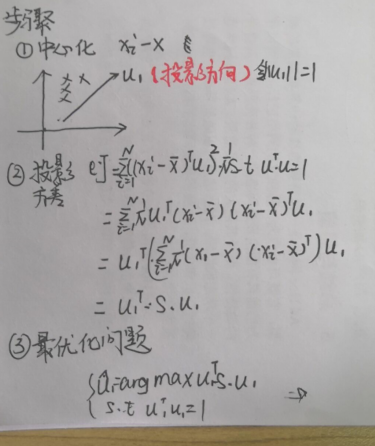 步骤
① 中心化 xi - x
u₁ (投影方向) ||u₁||=1
② 投影方差 J = Σ_{i=1}^{N} ((xi - x̄)ᵀu₁)² · 1/N s.t uᵀ·u=1
= Σ_{i=1}^{N} 1/N u₁ᵀ(xi - x̄)(xi - x̄)ᵀu₁
= u₁ᵀ(Σ_{i=1}^{N} 1/N (xi - x̄)(xi - x̄)ᵀ)u₁
= u₁ᵀ·S·u₁
③ 最优化问题
{ û₁=arg max u₁ᵀS·u₁
s.t u₁ᵀu₁=1 ⇒